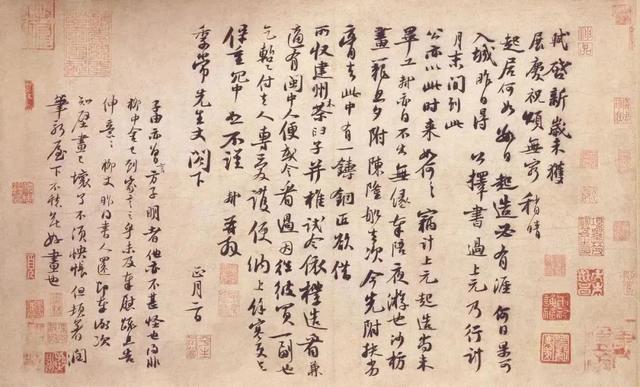 軾啓新歲未獲
展慶祝頌無窮稍晴
起居何如數日起造必有涯何日果可
入城昨日得公擇書過上元乃行計
月末間到此
公亦以此時来如何〻竊計上元起造尚未
畢工軾亦自不出無緣奉陪夜游也沙枋
畫籠旦夕附陳隆舡去次今先附扶劣
膏去此中有一鑄銅匠欲借
所収建州木茶臼子并椎試令依樣造看兼
適有閩中人便或令看過因往彼買一副也
乞暫付去人專愛護便納上餘寒更乞
保重冗中恕不謹軾再拜
季常先生丈閣下
正月二日
子由亦曾言方子明者他亦不甚怪也得非
柳中舍已到家言之乎未及奉慰疏且告
伸意〻柳丈昨得書人還即奉謝次
知壁畫已壞了不須怏悵但頓著潤
筆新屋下不愁無好畫也